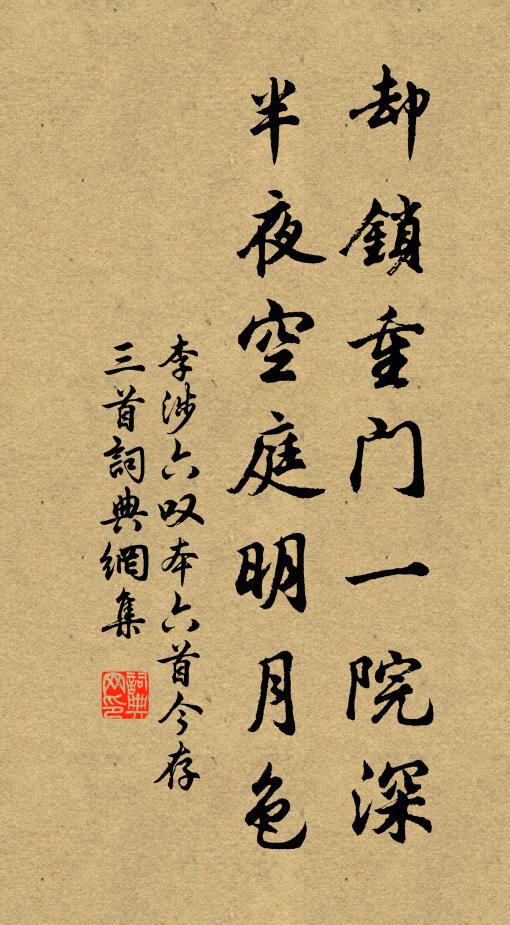 却鎖重门一院深
半夜空庭明月色
李涉六叹本六首今存
三首詞典網集
詞典
网印